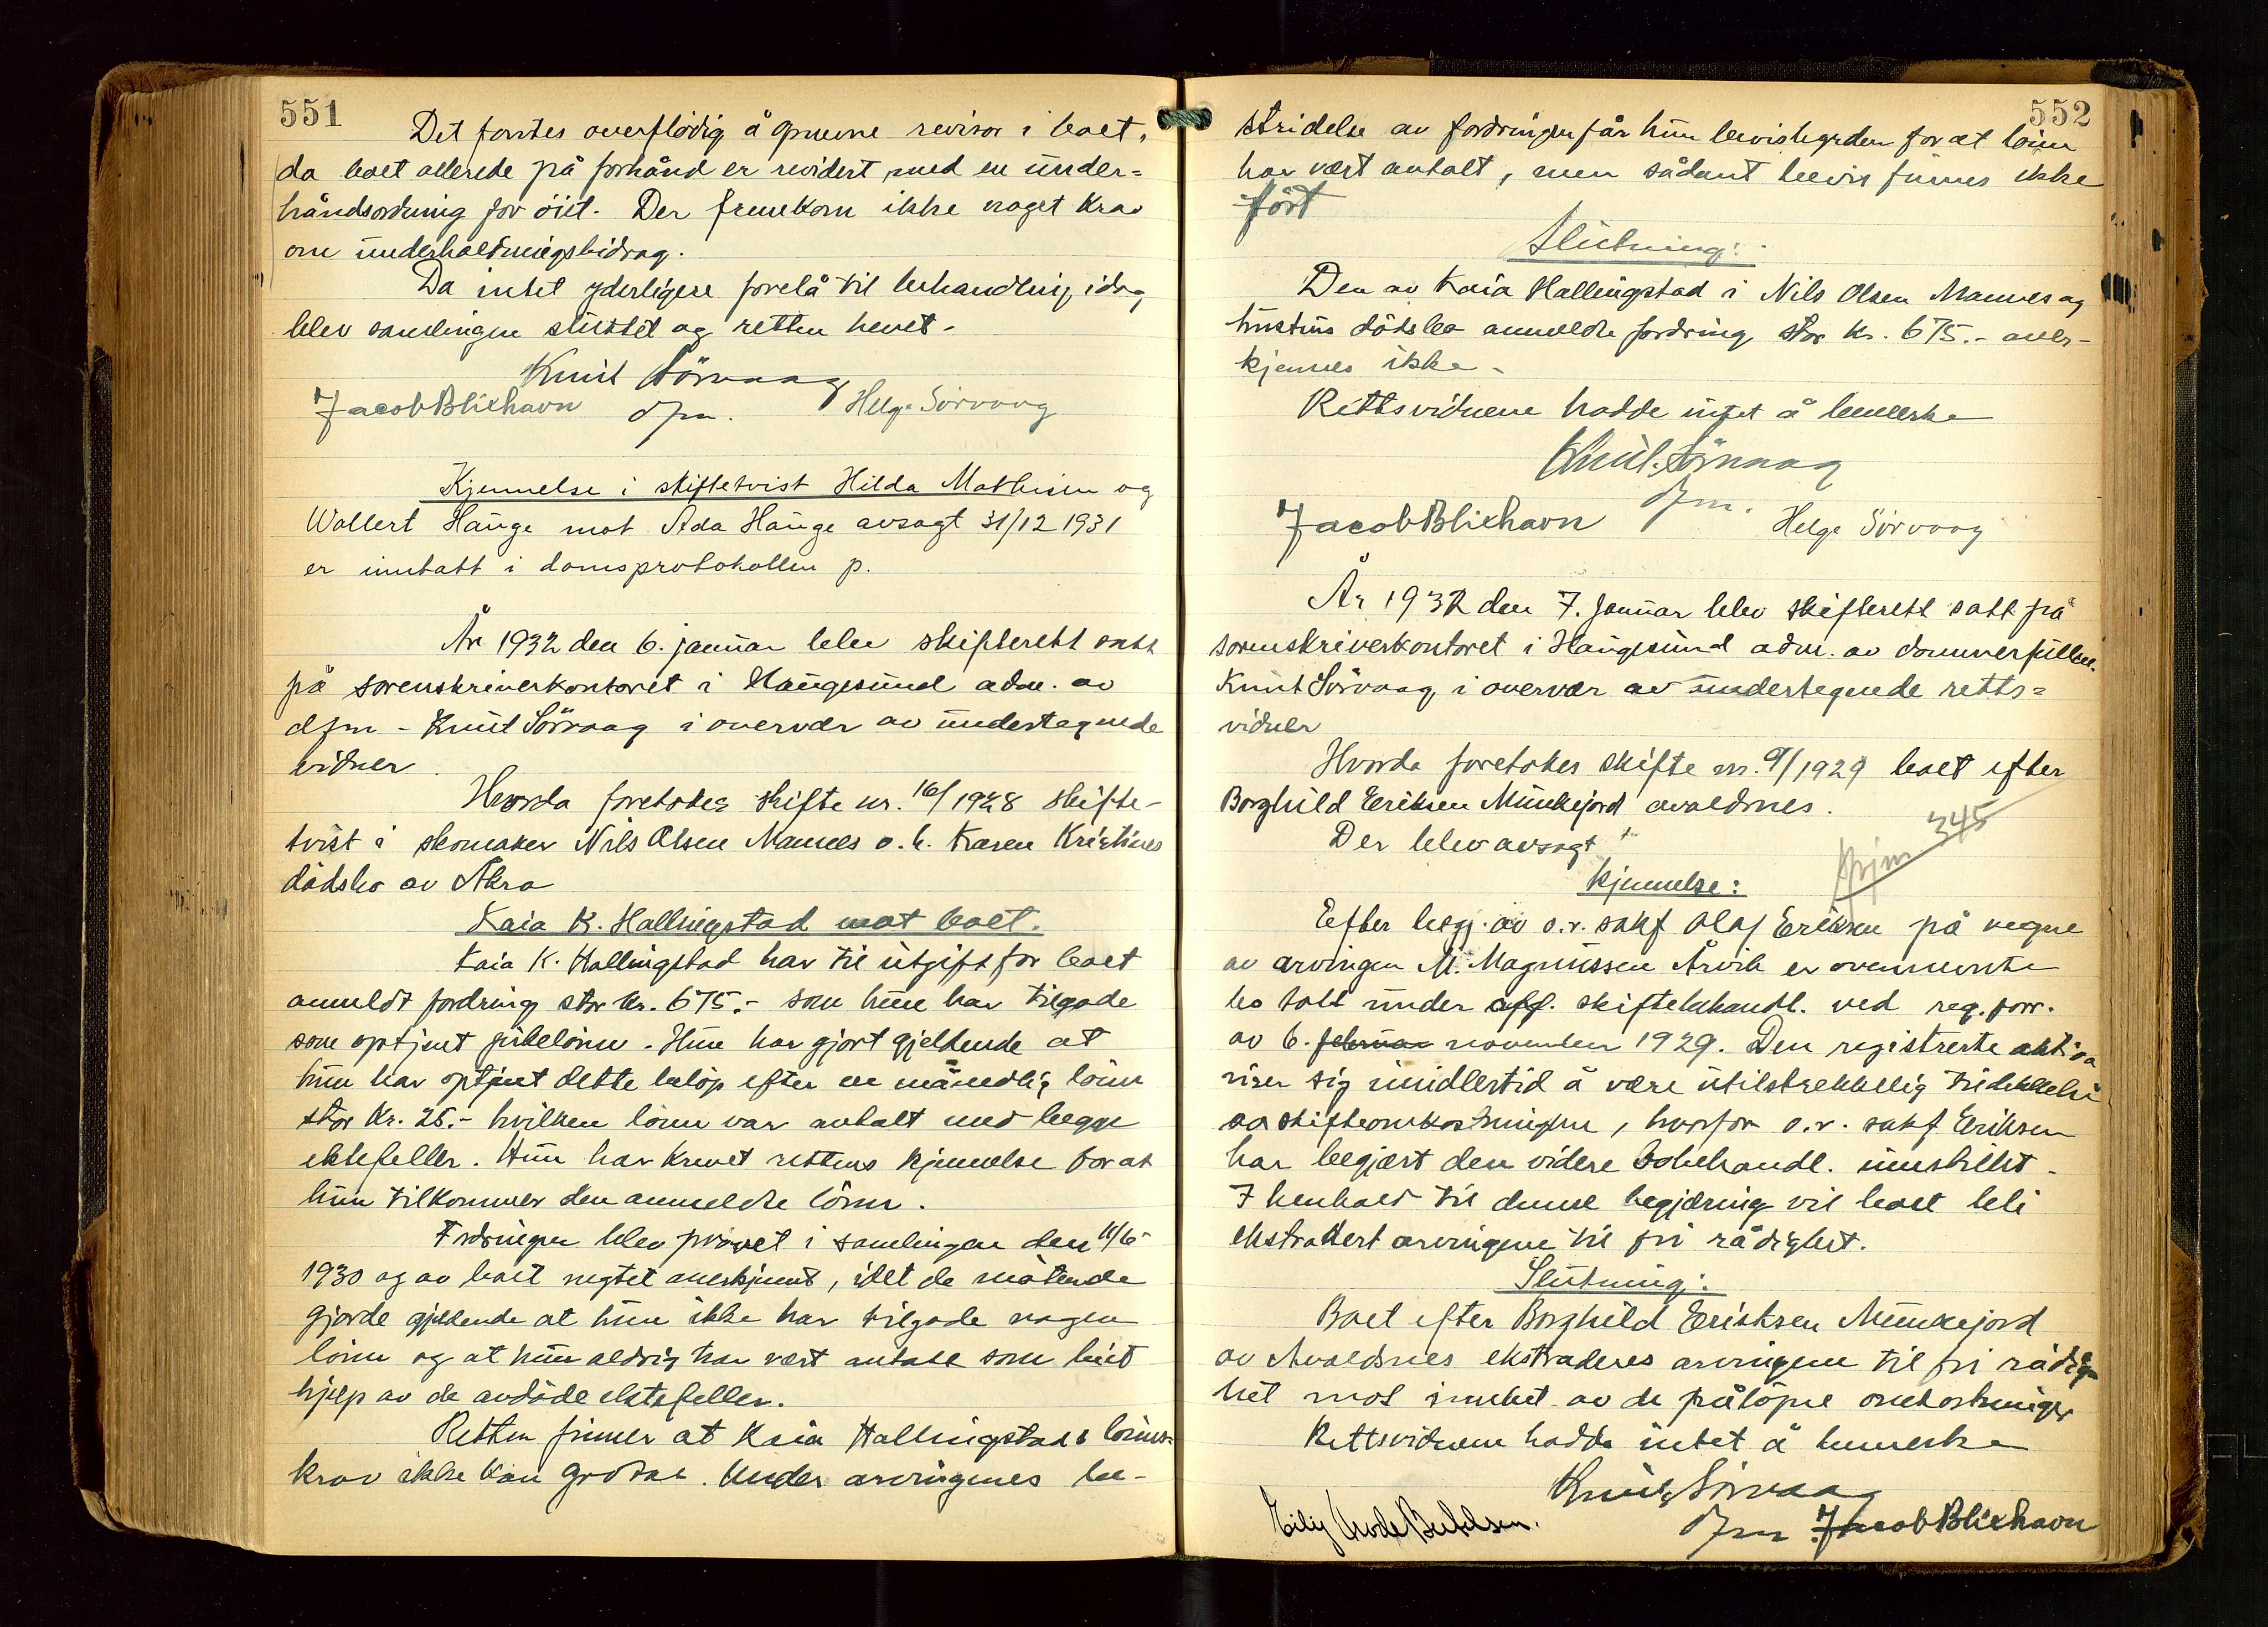 551
Det fantes overflödig å opnevne revisor i boet,
da boet allerede på forhånd er revidert med en under=
håndsordning for öiet. Der fremkom ikke noget krav
om underholdningsbidrag.
Da intet yderligere forelå til behandling idag
blev samlingen sluttet og retten hevet.
Knut Sörvaag
Jacob Blixhavn dfm. Helge Sörvaag
Kjennelse i skiftetvist Hilda Mathisen og
Wollert Hauge mot Ada Hauge avsagt 31/12 1931
er inntatt i domsprotokollen p.
År 1932 den 6. januar blev skifterett satt
på sorenskriverkontoret i Haugesund adm. av
dfm - Knut Sörvaag i overvær av undertegnede
vidner.
Hvorda foretokes skifte nr. 16/1928 skifte-
tvist i skomaker Nils Olsen Mannes o. h. Karen Kristines
dödsbo av Åkra
Kaia K. Hallingstad mot boet.
Kaia K. Hallingstad har til utgift for boet
anmeldt fordring stor kr. 675.- som hun har tilgode
som optjent pikelönn. Hun har gjort gjeldende at
hun har optjent dette belöp efter en månedlig lönn
stor kr. 25.- hvilken lönn var avtalt med begge
ektefeller. Hun har krevet rettens kjennelse for at
hun tilkommer den anmeldte lönn.
Fordringen blev prövet i samlingen den 11/6-
1930 og av boet negtet anerkjent, idet de mötende
gjorde gjeldende at hun ikke har tilgode nogen
lönn og at hun aldrig har vært antatt som leiet
hjelp av de avdöde ektefeller.
Retten finner at Kaia Hallingstads lönns=
krav ikke kan godtas. Under arvingenes be-
552
stridelse av fordringen får hun bevisbyrden for at lönn
har vært avtalt, men sådant bevis finnes ikke
fört
Slutning:
Den av Kaia Hallingstad i Nils Olsen Mannes og
hustrus dödsbo anmeldte fordring stor kr. 675.- aner-
kjennes ikke.
Rettsvidnene hadde intet å bemerke
Knut Sörvaag
dfm.
Jacob Blixhavn Helge Sörvaag
År 1932 den 7. januar blev skifterett satt på
sorenskriverkontoret i Haugesund adm. av dommerfullm.
Knut Sörvaag i overvær av undertegnede retts=
vidner
Hvorda foretokes skifte nr. 9/1929 boet efter
Borghild Eriksen Munkejord avaldsnes.
Der blev avsagt
345
Kjennelse:
Efter begj. av o.r. sakf Olaf Eriksen på vegne
av arvingen M. Magnussen Årvik er ovennevnte
bo tatt under off. skiftebehandl. ved reg. forr.
av 6. februar november 1929. Den registrerte aktiva
viser sig imidlertid å være utilstrekkelig til dekkelse
av skifteomkostningene, hvorfor o.r. sakf Eriksen
har begjært den videre bobehandl. innstillet.
I henhold til denne begjæring vil boet bli
ekstradert arvingene til fri rådighet.
Slutning:
Boet efter Borghild Eriksen Munkejord
av Avaldsnes ekstraderes arvingene til fri rådig
het mot innbet. av de pålöpne omkostninger
Rettsvidnene hadde intet å bemerke
Knut Sörvaag
dfm Jacob Blixhavn